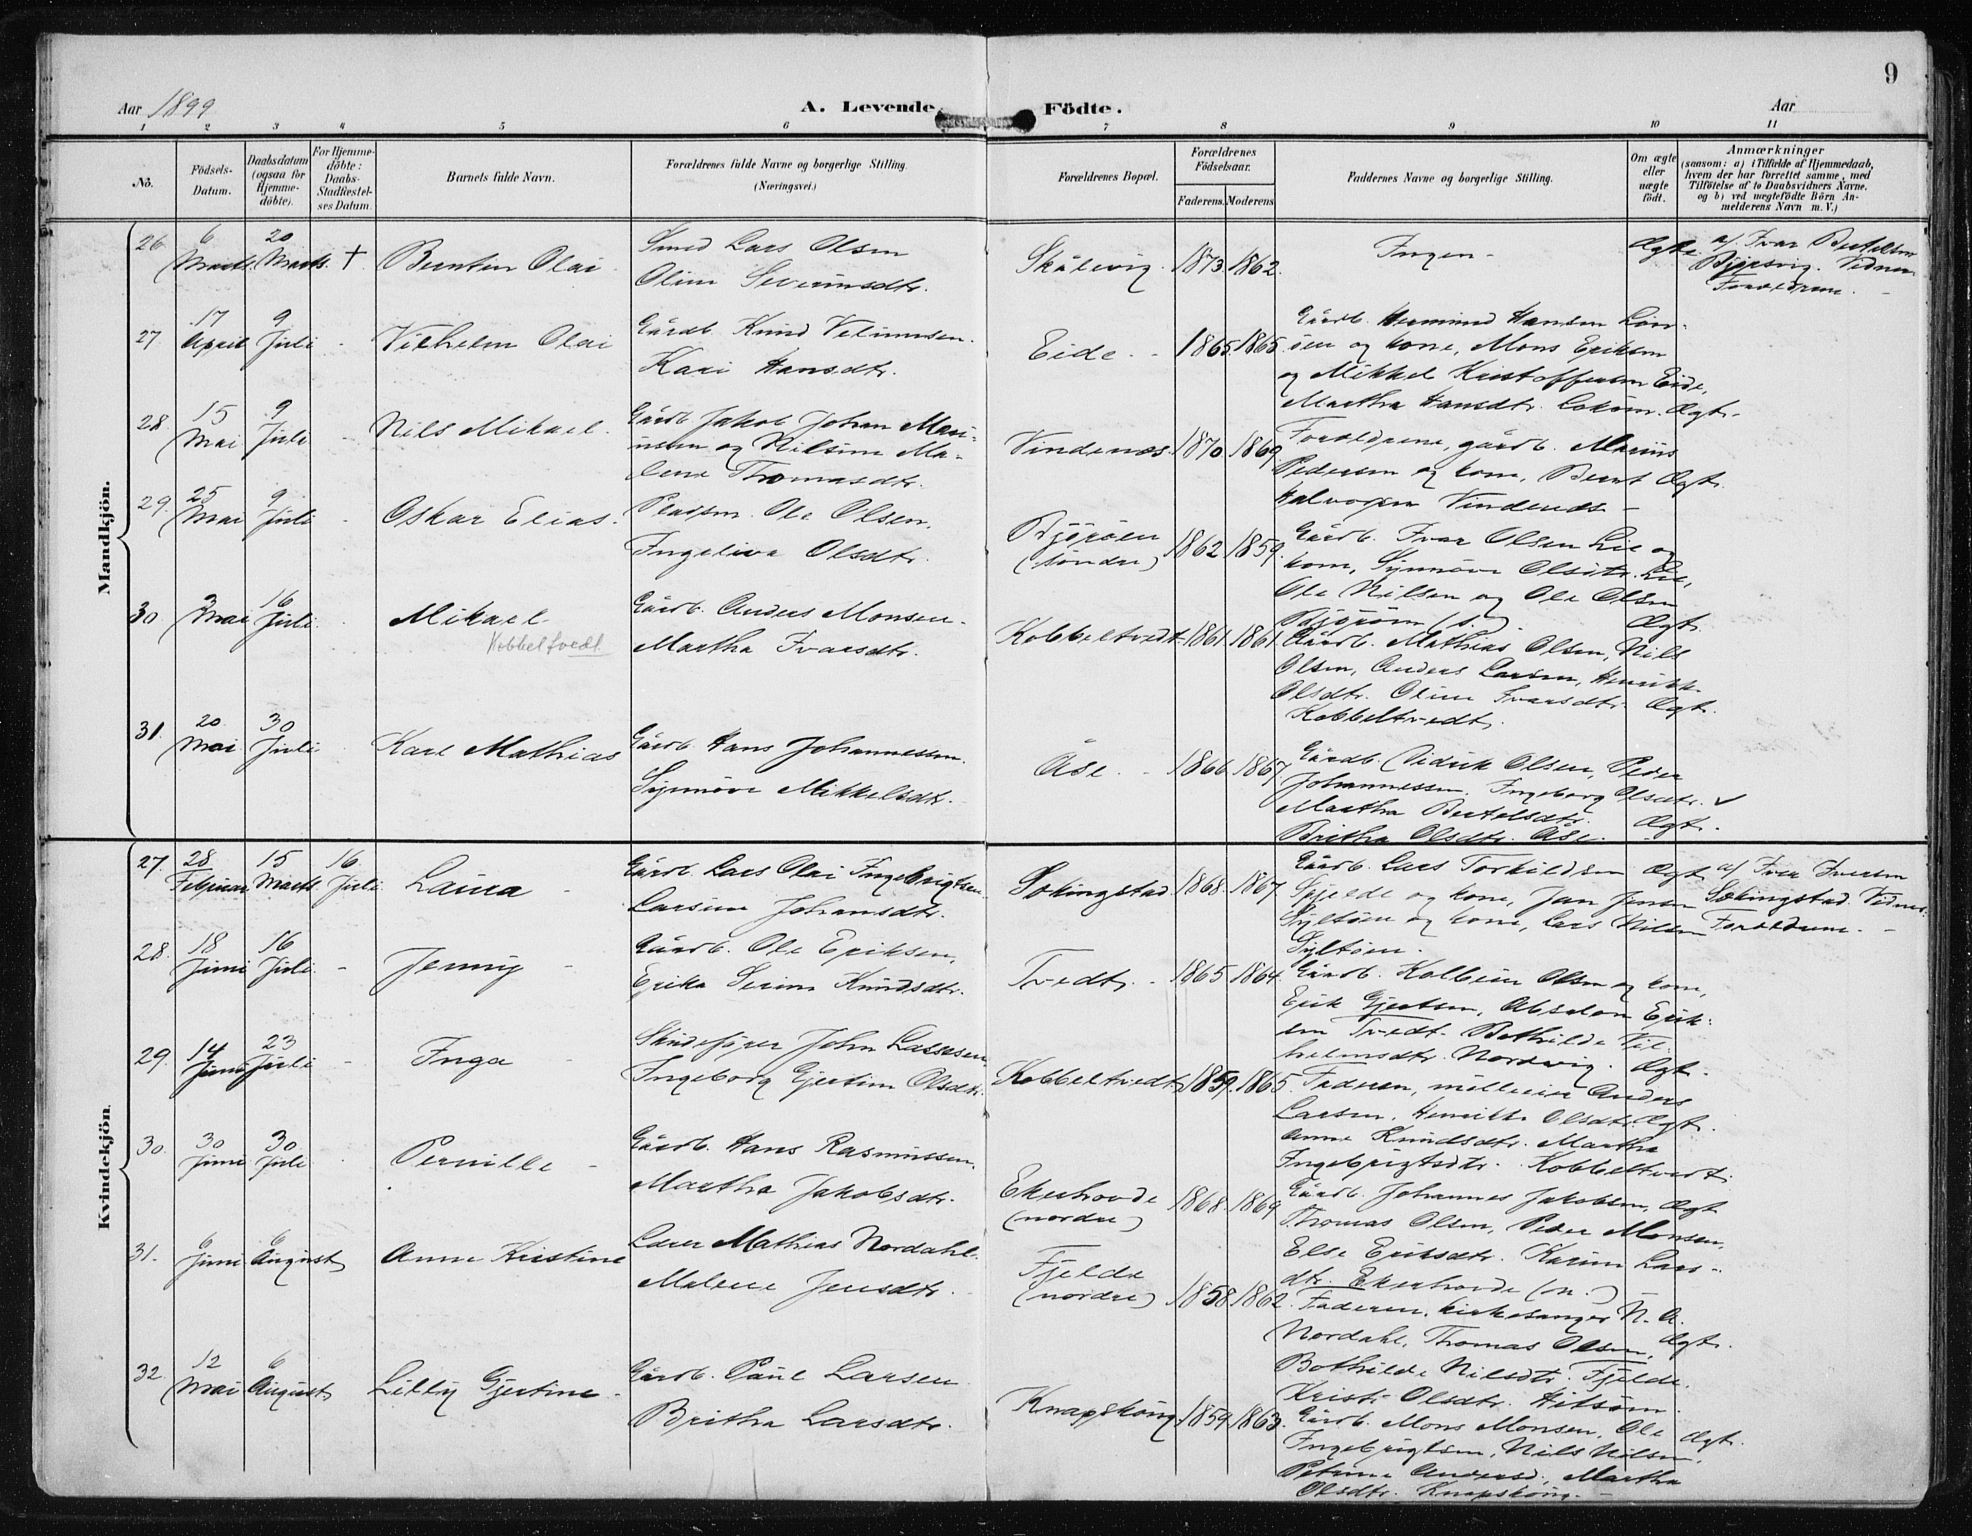 9
Aar 1899
A. Levende Födte.
Aar
1 2 3 4 5 6 7 8 9 10 11
No.
Födsels-Datum.
Daabsdatum (ogsaa for Hjemme-döbte).
For Hjemme-döbte: Daabs-Stadfestel-ses Datum.
Barnets fulde Navn.
Forældrenes fulde Navne og borgerlige Stilling. (Næringsvei.)
Forældrenes Bopæl.
Forældrenes Födselsaar.
Faderens. Moderens.
Faddernes Navne og borgerlige Stilling.
Om ægte eller uægte födt.
Anmærkninger
(saasom: a) i Tilfælde af Hjemmedaab,
hvem der har forrettet samme, med
Tilföielse af to Daabsvidners Navne.
og b) ved uægtefödte Börn An-
melderens Navn m. V.)
Mandkjön.
26 6 Marts 20 Marts † Berntin Olai
Smed Lars Olsen
Oline Severinsdtr.
Skålevig. 1873. 1862. Ingen - Ægte
a/ Ivar Bertelsen
Bjørsvig. Vidner
Forældrene.
27 17 April 9 Juli - Vilhelm Olai
Gårdb. Knud Velumsen.
Kari Hansdtr.
Eide. - 1865. 1865.
Gårdb. Hermund Hansen Lön-
öen og kone, Mons Eriksen
og Mikkel Kristoffersen Eide,
Martha Hansdtr. Ægt.
28. 15 Mai 9 Juli - Nils Mikael.
Gårdb. Jakob Johan Mari-
nsen og Nilsine Ma-
lene Thomasdtr.
Vindenæs 1870. 1869.
Forældrene, gårdb. Marius
Pedersen og kone, Bernt Ægt.
Halvorsen Vindenæs -
29. 25 Mai 9 Juli - Oskar Elias.
Pladsm. Ole Olsen,
Ingeliva Olsdtr.
Björöen (söndre) 1862. 1859.
Gårdb. Ivar Olsen Lie og
kone, Synnöve Olsdtr. Lie,
Ole Nilsen og Ole Olsen
Björöen (s.) Ægt.
30 3 Mai 16 Juli. Mikael
Kobbeltvedt
Gårdb. Anders Monsen.
Martha Ivarsdtr.
Kobbeltvedt. 1861. 1861.
Gårdb. Mathias Olsen, Nils
Olsen, Anders Larsen, Henrikk
Olsdtr. Oline Ivarsdtr. Ægt.
Kobbeltvedt.
31. 20 Mai 30 Juli Karl Mathias
Gårdb. Hans Johannessen.
Synnöve Mikkelsdtr.
Åse. - 1866. 1867.
Gårdb. Didrik Olsen, Peder
Johannessen, Ingeborg Olsdtr. ✓
Martha Bertelsdtr. Ægt.
Britha Olsdtr. Åse.
Kvindekjön.
27. 28 Februar 15 Marts 16. Juli Laura -
Gårdb. Lars Olai Ingebrigtsen
Larsine Johansdtr.
Sökingstad 1868. 1867
Gårdb. Lars Torkildsen Ægt
Spjelde og kone, Jan Jensen
Syltöen og kone, Lars Nilsen
Syltöen.
a/ Ivar Iversen
Sökingstad. Vidner
Forældrene. -
28. 18 Juni 16 Juli. - Jenny -
Gårdb. Ole Eriksen,
Erika Serine Knudsdtr.
Tvedt. - 1865. 1864.
Gårdb. Kolbein Olsen og kone,
Erik Gjertsen, Absalon Erik-
sen Tvedt. Bothilde Vil-
helmsdtr. Nordvig. Ægt.
29. 14 Juni 23 Juli - Inga -
Skudeförer John Lassesen
Ingeborg Gjertine Olsdtr.
Kobbeltvedt 1859. 1865.
Faderen, mölleier Anders
Larsen, Henrikke Olsdtr Ægt.
Anne Knudsdtr. Martha
Ingebrigtsdtr. Kobbeltvedt.
30. 30 Juni 30 Juli Pernille -
Gårdb. Hans Rasmussen,
Martha Jakobsdtr.
Ekerhovde (nordre) 1868. 1869
Gårdb. Johannes Jakobsen, Ægt
Thomas Olsen, Peder Monsen,
Else Eriksdtr. Karine Lars-
dtr. Ekerhovde (n.)
31. 6 Juni 6 August Anne Kristine
Lærer Mathias Nordahl.
Malene Jensdtr.
Fjelde (nordre) 1858. 1862.
Faderen, kirkesanger N. A.
Nordahl, Thomas Olsen, Ægt.
Bothilde Nilsdtr. Fjelde.
Kristi Olsdtr. Hitsöen.
32 12 Mai 6 August Lilly Gjertine -
Gårdb. Paul Larsen
Britha Larsdtr.
Knapskong. 1859. 1863.
Gårdb. Mons Monsen, Ole Ægt.
Ingebrigtsen, Nils Nilsen,
Petrine Andersd., Martha
Olsdtr. Knapskong. -